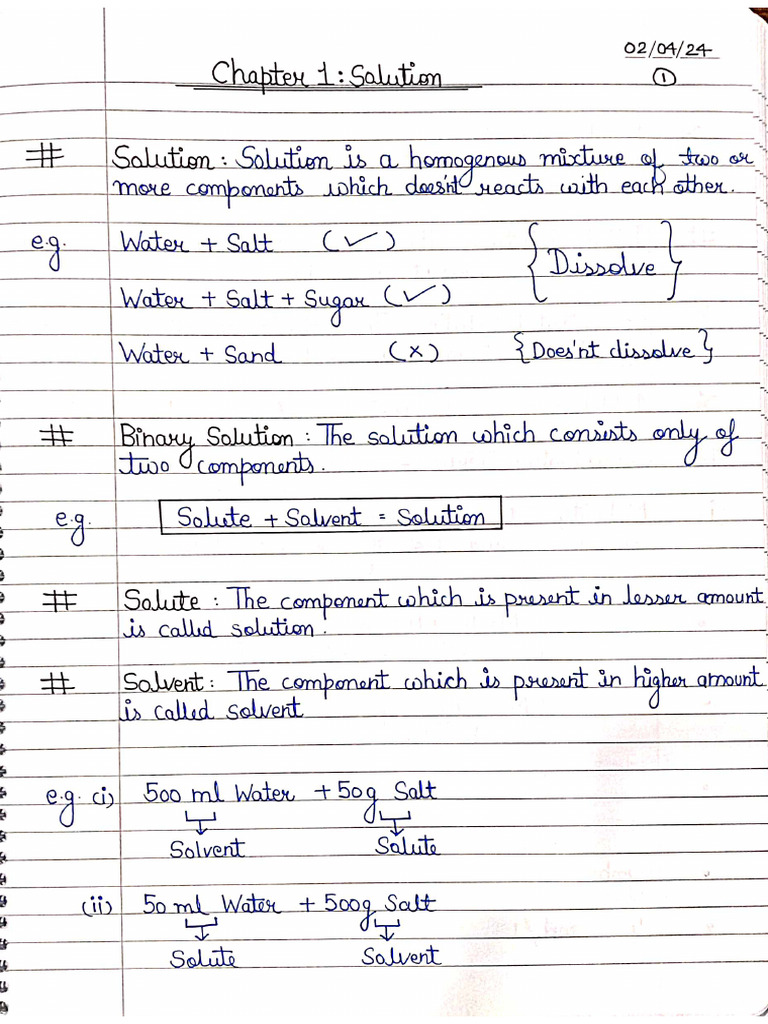 02/04/24
Chapter 1: Solution
1
# Solution: Solution is a homogenous mixture of two or
more components which does'nt reacts with each other.
e.g. Water + Salt (✓)
{Dissolve}
Water + Salt + Sugar (✓)
Water + Sand (×) {Does'nt dissolve}
# Binary Solution: The solution which consists only of
two components.
e.g. Solute + Solvent = Solution
# Solute: The component which is present in lesser amount
is called solution.
# Solvent: The component which is present in higher amount
is called solvent
e.g. (i) 500 ml Water + 50g Salt
Solvent Solute
(ii) 50 ml Water + 500g Salt
Solute Solvent